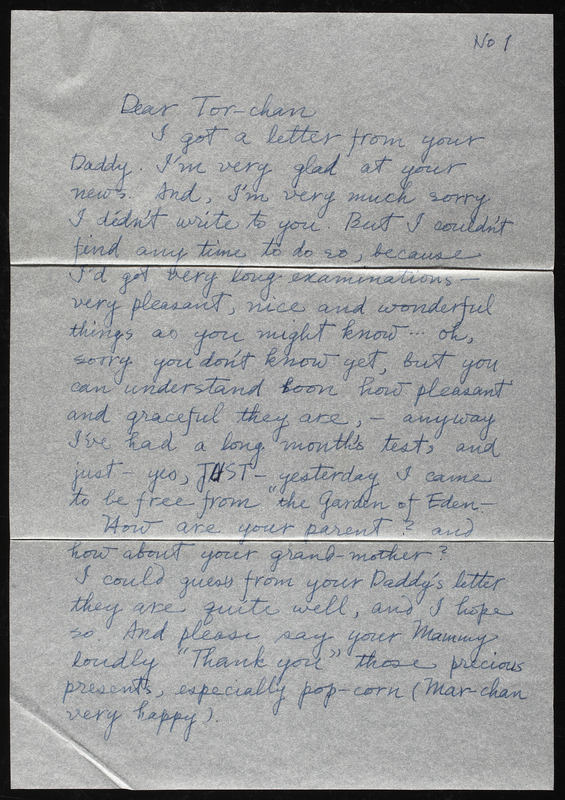 No 1
Dear Tor-chan
I got a letter from your
Daddy. I'm very glad at your
news. And, I'm very much sorry
I didn't write to you. But I couldn't
find any time to do so, because
I'd got very long examinations -
very pleasant, nice and wonderful
things as you might know … oh,
sorry you don't know yet, but you
can understand soon how pleasant
and graceful they are, - anyway
I've had a long month's test, and
just - yes, JUST - yesterday I came
to be free from "the Garden of Eden-
How are your parent? and
how about your grand-mother?
I could guess from your Daddy's letter
they are quite well, and I hope
so. And please say your Mammy
loudly "Thank you" those precious
presents, especially pop-corn (Mar-chan
very happy).